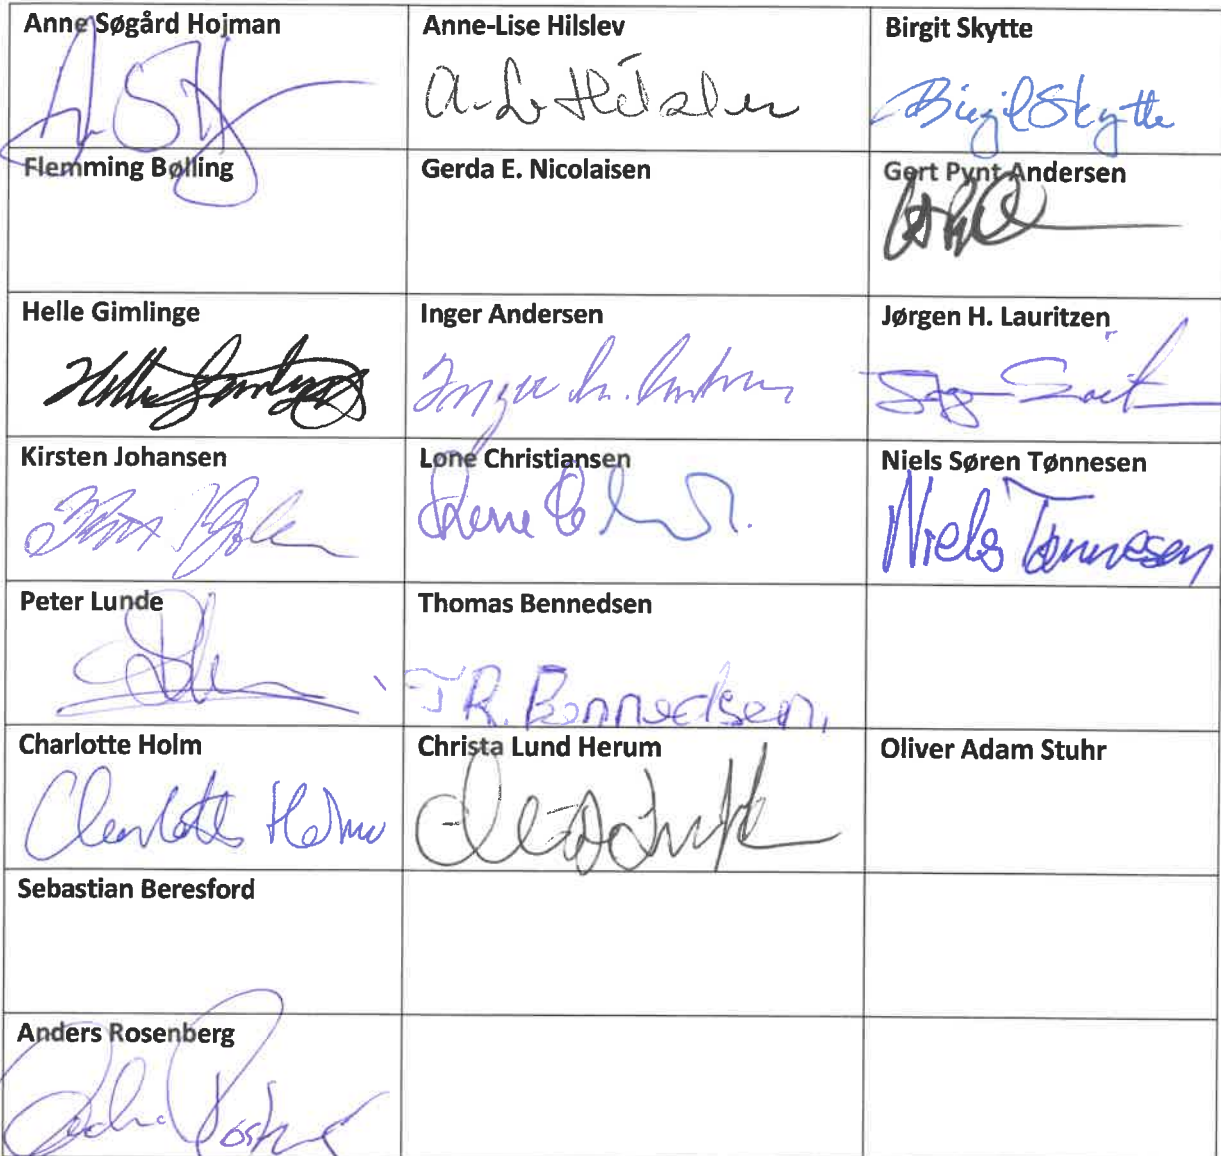 Anne Søgård Hojman
Anne-Lise Hilslev
Birgit Skytte
A-L Hilslev
Birgit Skytte
Flemming Bølling
Gerda E. Nicolaisen
Gert Pynt Andersen
Helle Gimlinge
Inger Andersen
Jørgen H. Lauritzen
Kirsten Johansen
Lone Christiansen
Niels Søren Tønnesen
Niels Tønnesen
Peter Lunde
Thomas Bennedsen
TR. Bennedsen
Charlotte Holm
Christa Lund Herum
Oliver Adam Stuhr
Charlotte Holm
Sebastian Beresford
Anders Rosenberg